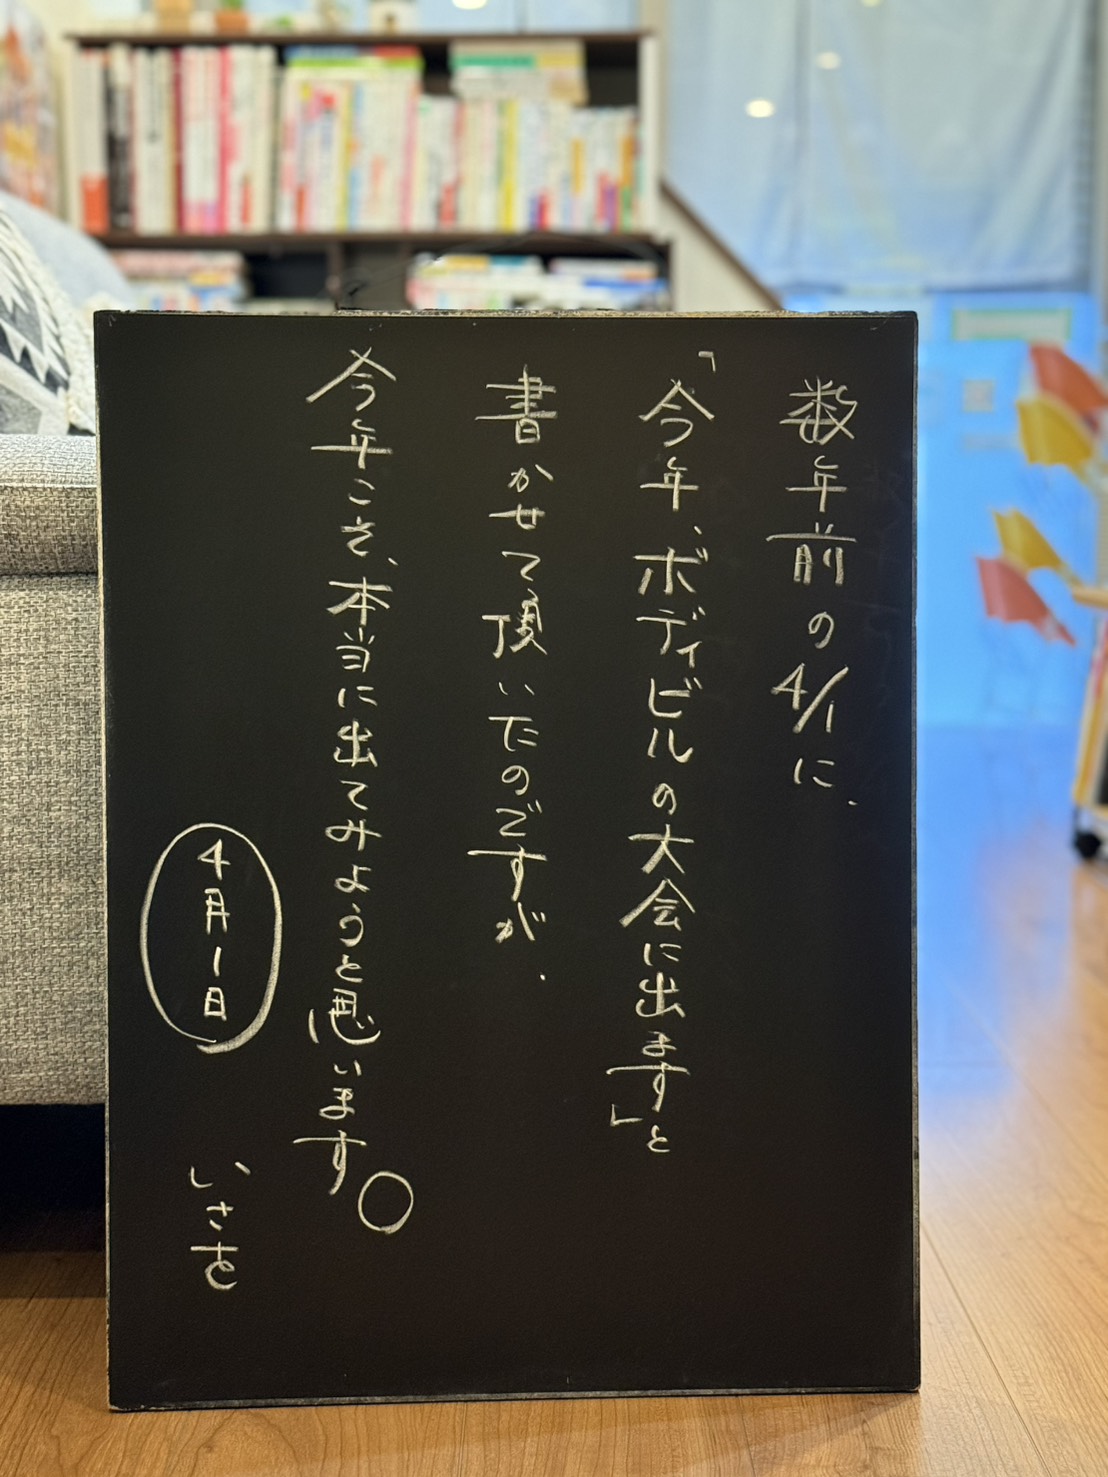 数年前の4/1に、
「今年、ボディビルの大会に出ます」と
書かせて頂いたのですが、
今年こそ、本当に出てみようと思います。
4月1日
いさを